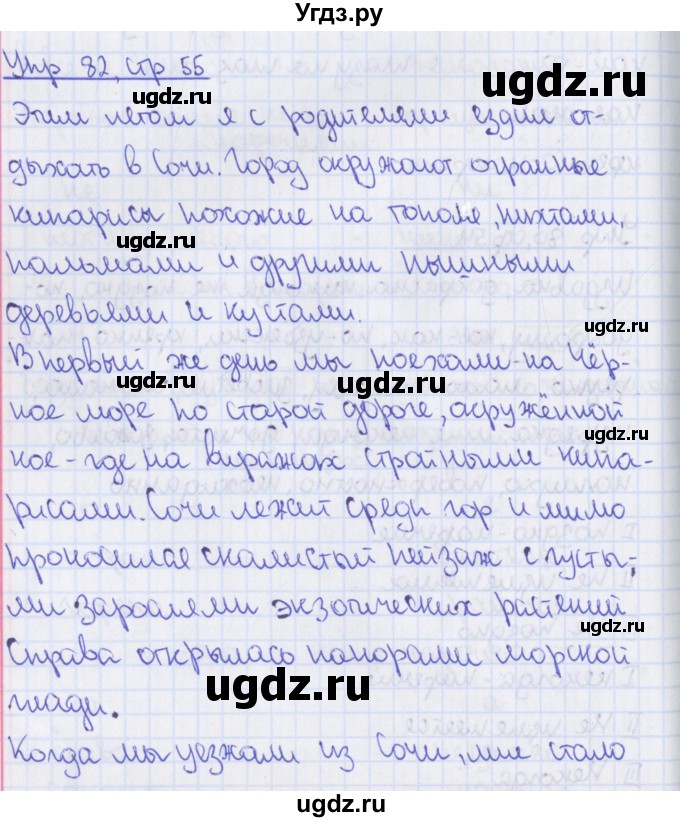 Угдз.ру
Упр 82, стр 55
ugdz.ru
ugdz.ru
Этим летом я с родителями ездил от-
дыхать в Сочи. Город окружают огромные
кипарисы похожие на тополя, пихтами,
ugdz.ru
пальмами и другими пышными
деревьями и кустами.
ugdz.ru
В первый же день мы поехали на Чёр-
ugdz.ru
ugdz.ru
ное море по старой дороге, окружённой
кое-где на виражах стройными кипа-
ugdz.ru
рисами. Сочи лежит среди гор и мимо
проносился скалистый пейзаж с густы-
ми зарослями экзотических растений
ugdz.ru
Справа открылась панорама морской
ugdz.ru
глади.
Когда мы уезжали из Сочи, мне стало
ugdz.ru